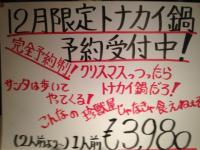 12月限定トナカイ鍋
予約受付中!
完全予約制!
クリスマスっつったら
トナカイ鍋だろ!
サンタは歩いて
やってくる!
こんなの珍獣屋じゃなきゃ食えねぇぞ
(2人前より~)1人前 ¥3,980